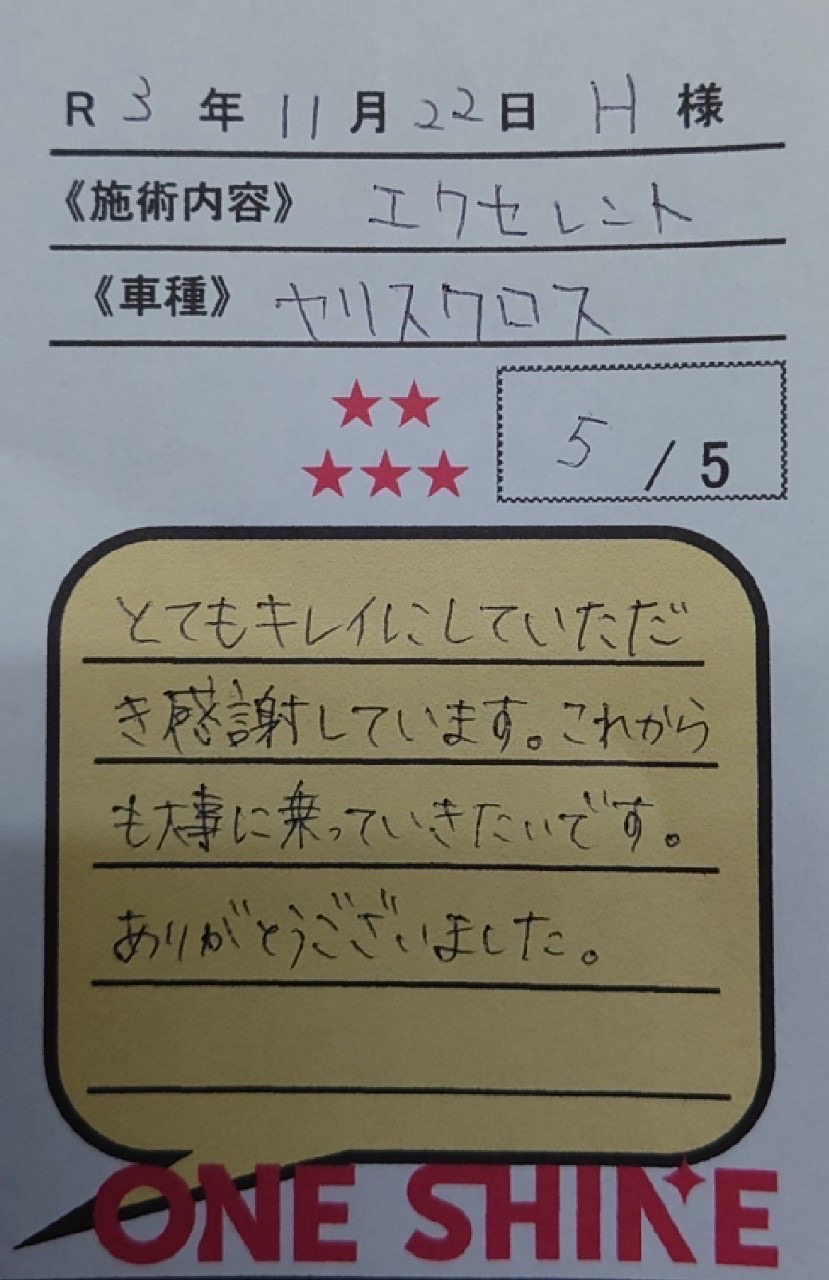 R 3 年 11 月 22 日 H 様
《施術内容》 エクセレント
《車種》 ヤリスクロス
★★
★★★ 5 / 5
とてもキレイにしていただ
き感謝しています。これから
も大事に乗っていきたいです。
ありがとうございました。
ONE SHINE